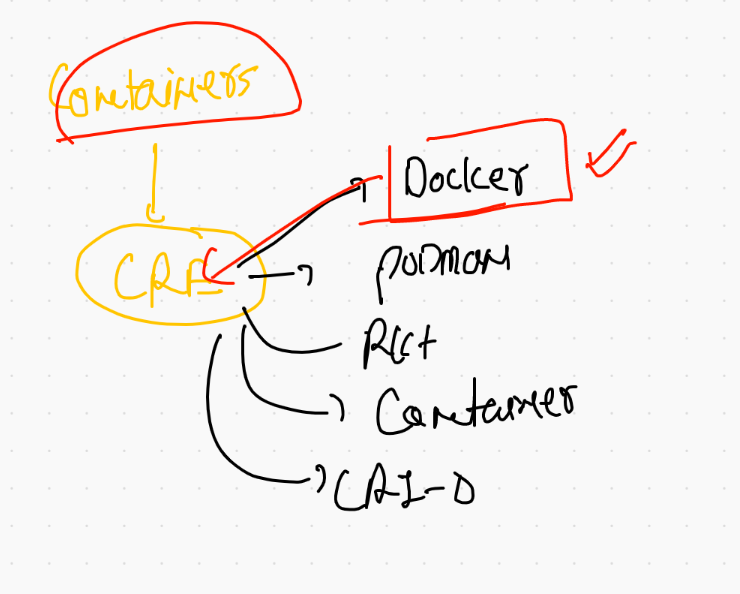 Containers
CRE
Docker
podman
Rkt
Container
CRI-O